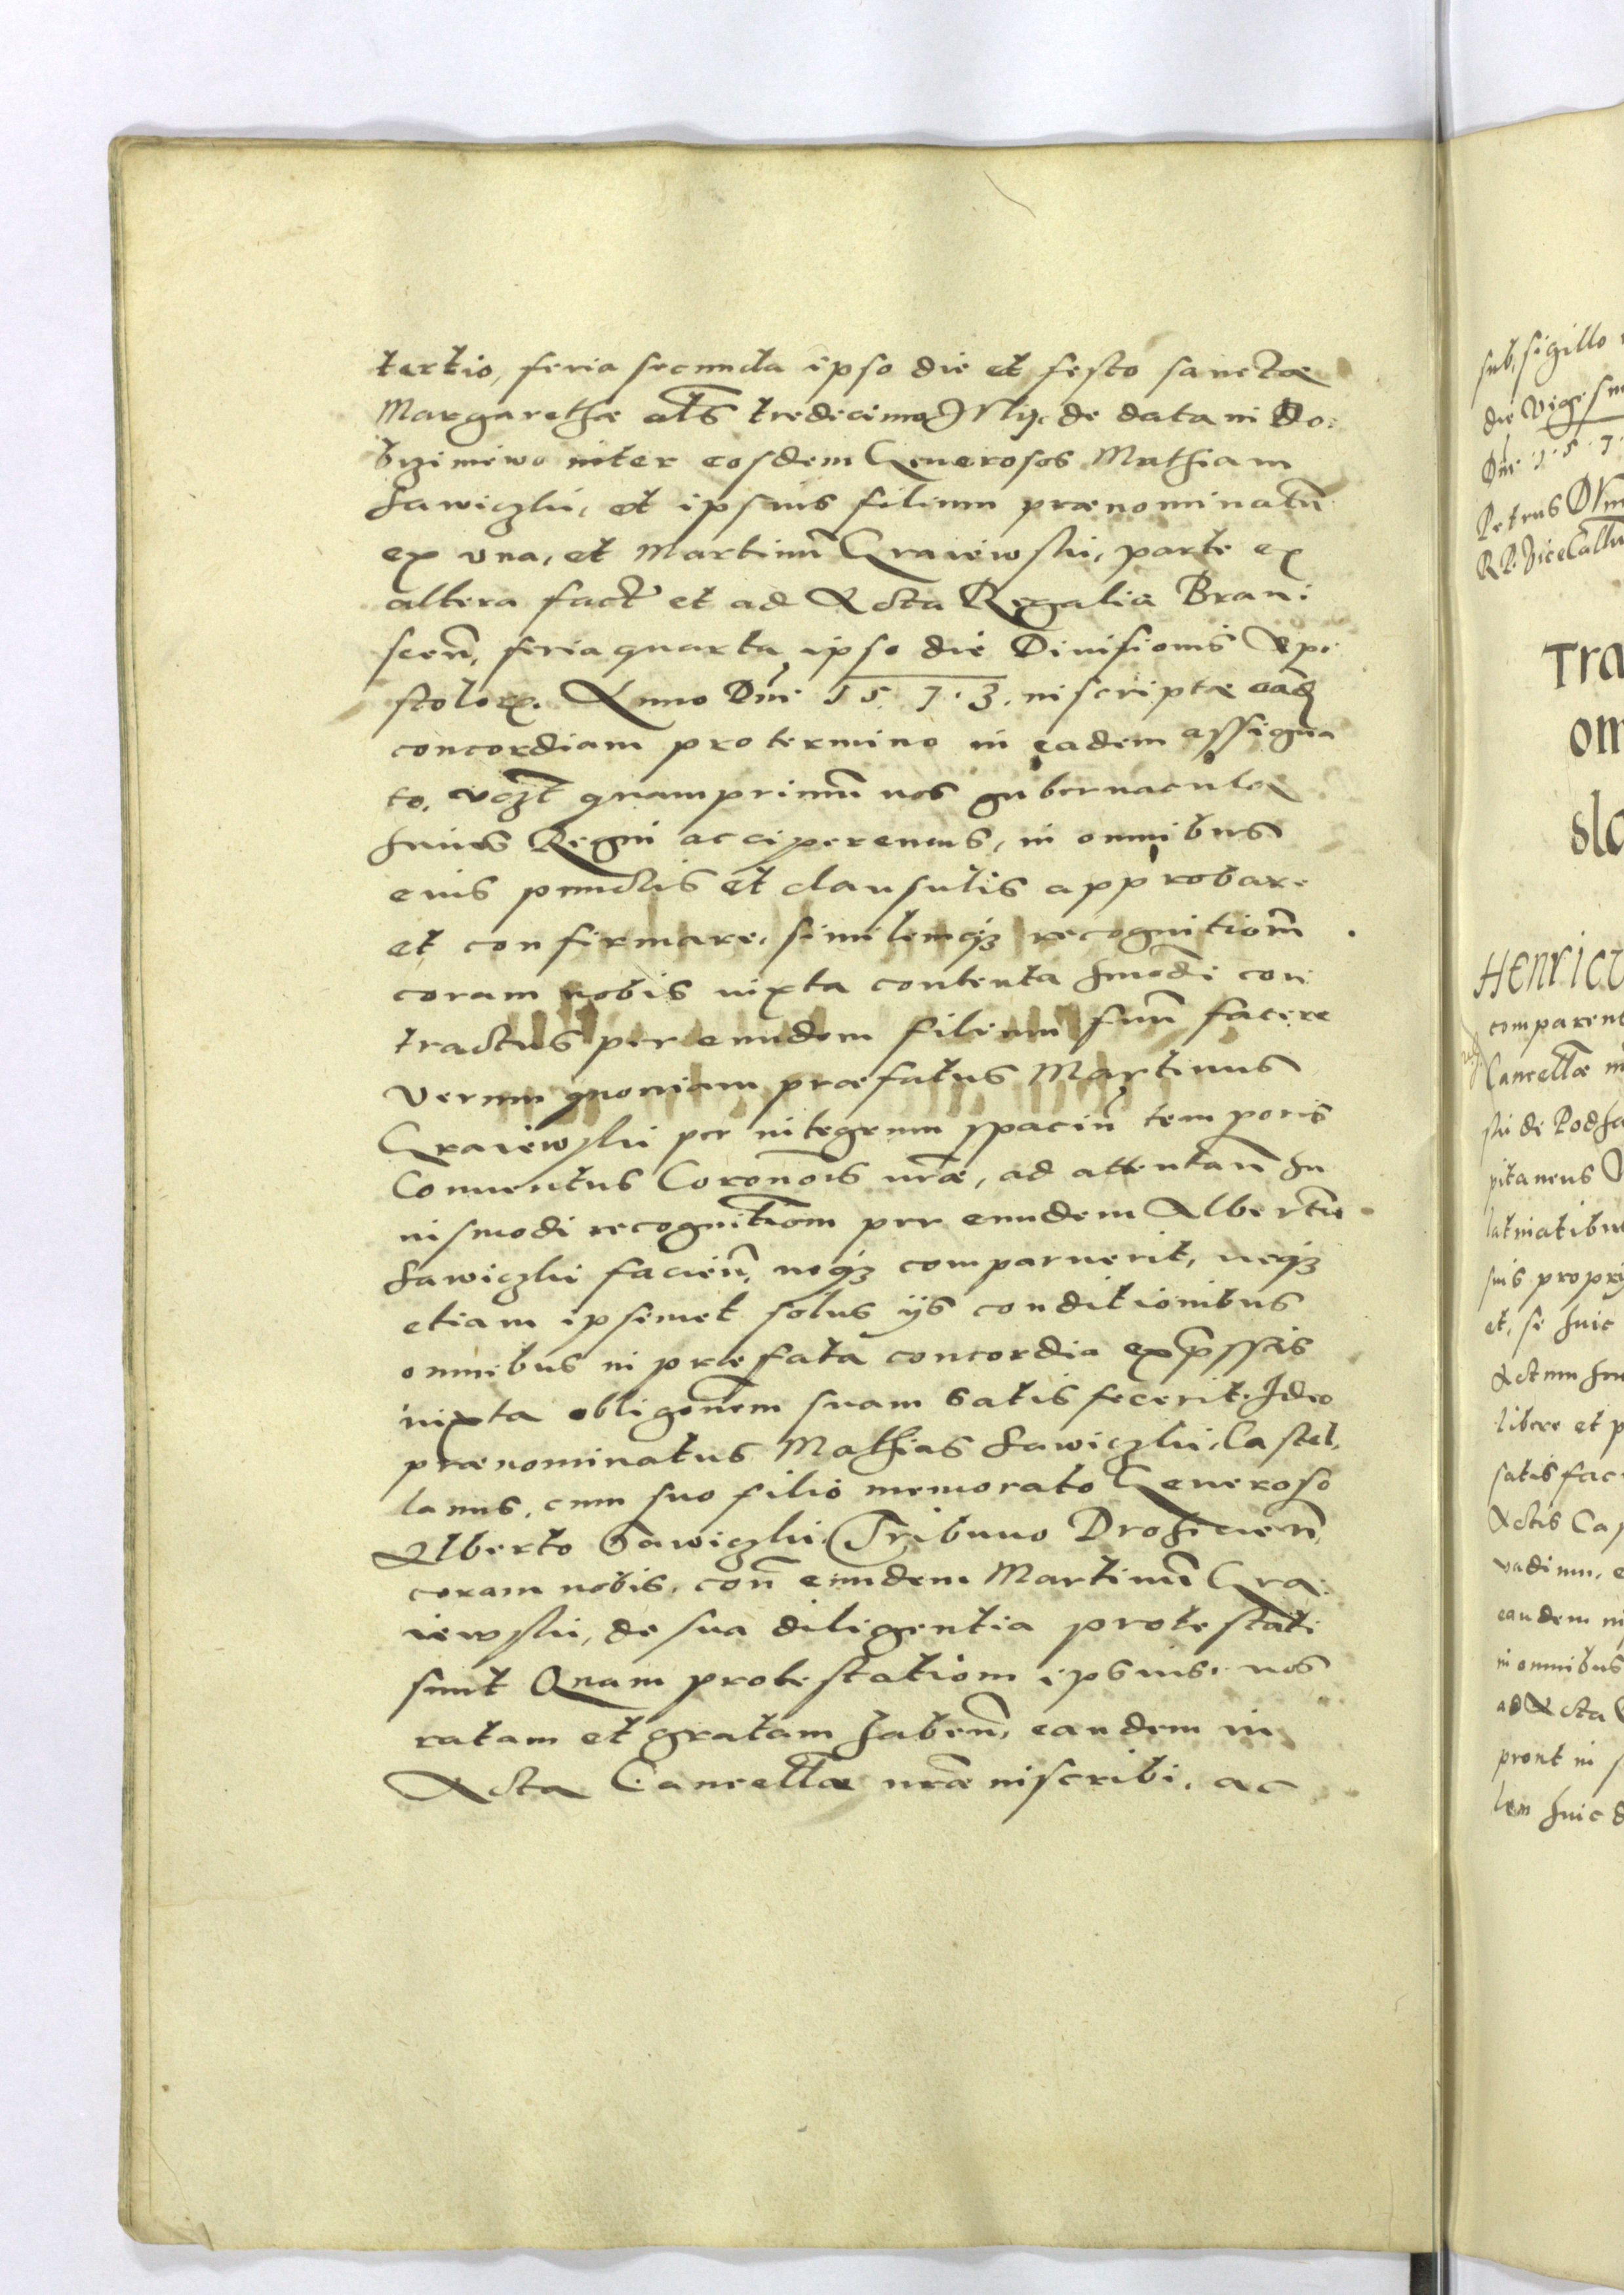 tertio, feria secunda ipso die et festo sanctæ
Margarethæ als̃ tredecima July, de data in Do:
brzimiewo inter eosdem Generosos Mathiam
Sawiczki, et ipsius filium prænominatũ
ex vna, et Martinũ Graiewski, parte ex
altera fact' et ad Acta Regalia Brani
sceñ, feria quarta ipso die Diuisionis Apo
stolorꝫ. Anno Dñi 1573. inscriptæ eãdẽ
concordiam pro termino in eadem assigna
to, vcꝫt quamprimũ nos gubernacula
huius Regni acciperemus, in omnibus
eius punctis et clausulis approbare
et confirmare, similemqꝫ recognitiom̃
coram nobis iuxta contenta hmõdi con
tractus per eundem filium suũ facere
Verum quoniam præfatus Martinus
Graiewski per integrum spaciũ temporis
Conuentus Coronõis nr̃æ, ad attentañ hu
iusmodi recognitiom̃ per eundem Albertũ
Sawiczki facieñ, neqꝫ comparuerit, neqꝫ
etiam ipsemet solus ijs conditionibus
omnibus in præfata concordia exp̃ssis
iuxta obligõnem suam satisfecerit. Ideo
prænominatus Mathias Sawiczki, Castel,
lanus, cum suo filio memorato Generoso
Alberto Sawiczki, Tribuno Drohicieñ,
coram nobis, coñ eundem Martinũ Gra
iewski, de sua diligentia protestati
sunt Quam protestatiom ipsius, nos
ratam et gratam habeñ, eandem in
Acta Cancellãæ nr̃æ inscribi, ac
sub, sigillo
die Vige
Dñi. 1.5.7.
Petrus
RP. ViceCan
Tra
om
sla
Henricu
comparent
Cancellæ
ski de Podha
pitaneus
latinatibus
suis propry
et, se huic
Actum hu
libere et p
satisfac
Actis Cap
vadium, e
eandem in
in omnibus
ad Acta
prout in s
huic